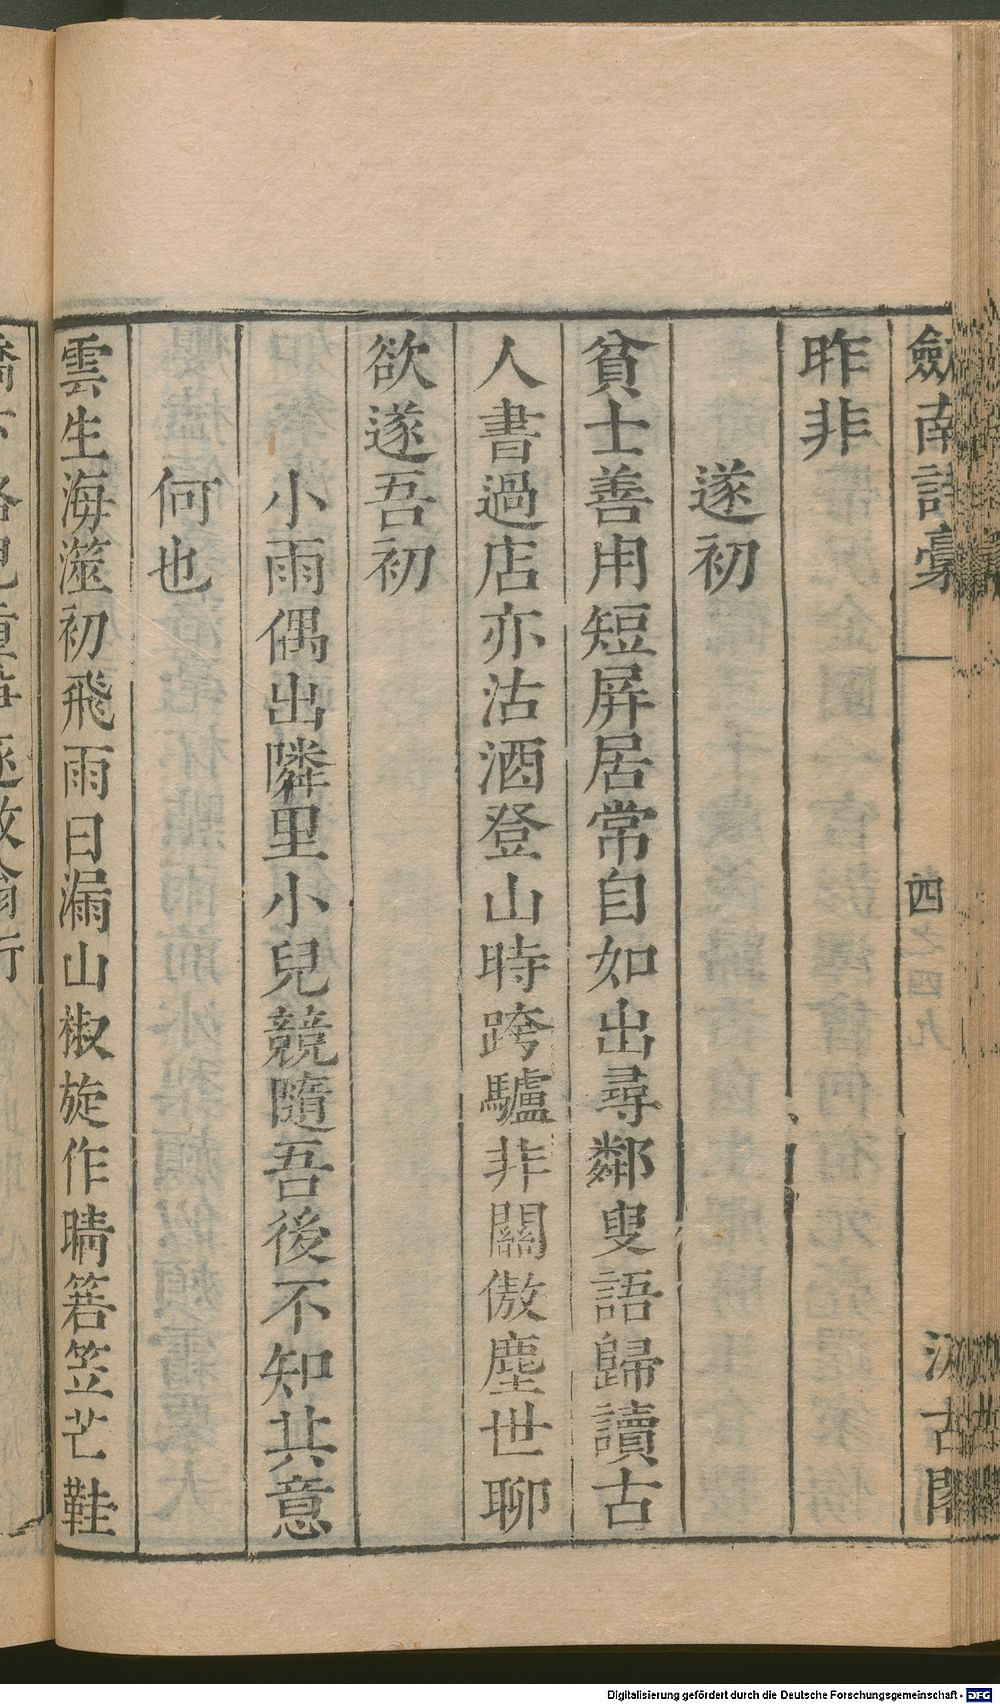 劍南詩藁 四 汲古閣
昨非
遂初
貧士善用短屏居常自如出尋鄰叟語歸讀古
人書過店亦沽酒登山時跨驢非關傲塵世聊
欲遂吾初
小雨偶出隣里小兒競隨吾後不知其意
何也
雲生海澨初飛雨日漏山椒旋作晴箬笠芒鞋
Digitalisierung gefördert durch die Deutsche Forschungsgemeinschaft - DFG